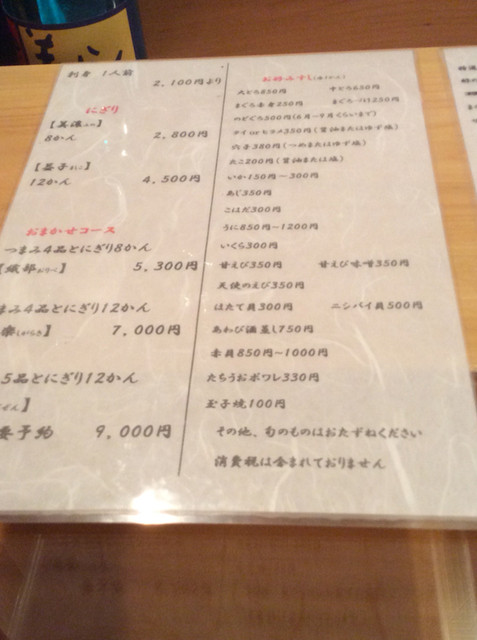 刺身 1人前
2,100円より
にぎり
【美濃みの】
8かん 2,800円
12かん 4,500円
おまかせコース
つまみ4品とにぎり8かん
【織部おりべ】 5,300円
まみ4品とにぎり12かん
楽しがらき】 7,000円
5品とにぎり12かん
ぜん】
要予約 9,000円
お好みずし
大とろ850円 中とろ650円
まぐろ赤身250円
のどぐろ500円(6月〜9月くらいまで)
タイorヒラメ350円(醤油またはゆず塩)
穴子380円(つめまたはゆず塩)
たこ200円(醤油または塩)
いか150円〜300円
あじ350円
こはだ300円
うに850円〜1200円
いくら300円
甘えび350円 甘えび味噌350円
天使のえび350円
ほたて貝300円 ニシバイ貝500円
あわび酒蒸し750円
赤貝850円〜1000円
たちうおポワレ330円
玉子焼100円
その他、旬のものはおたずねください
消費税は含まれておりません